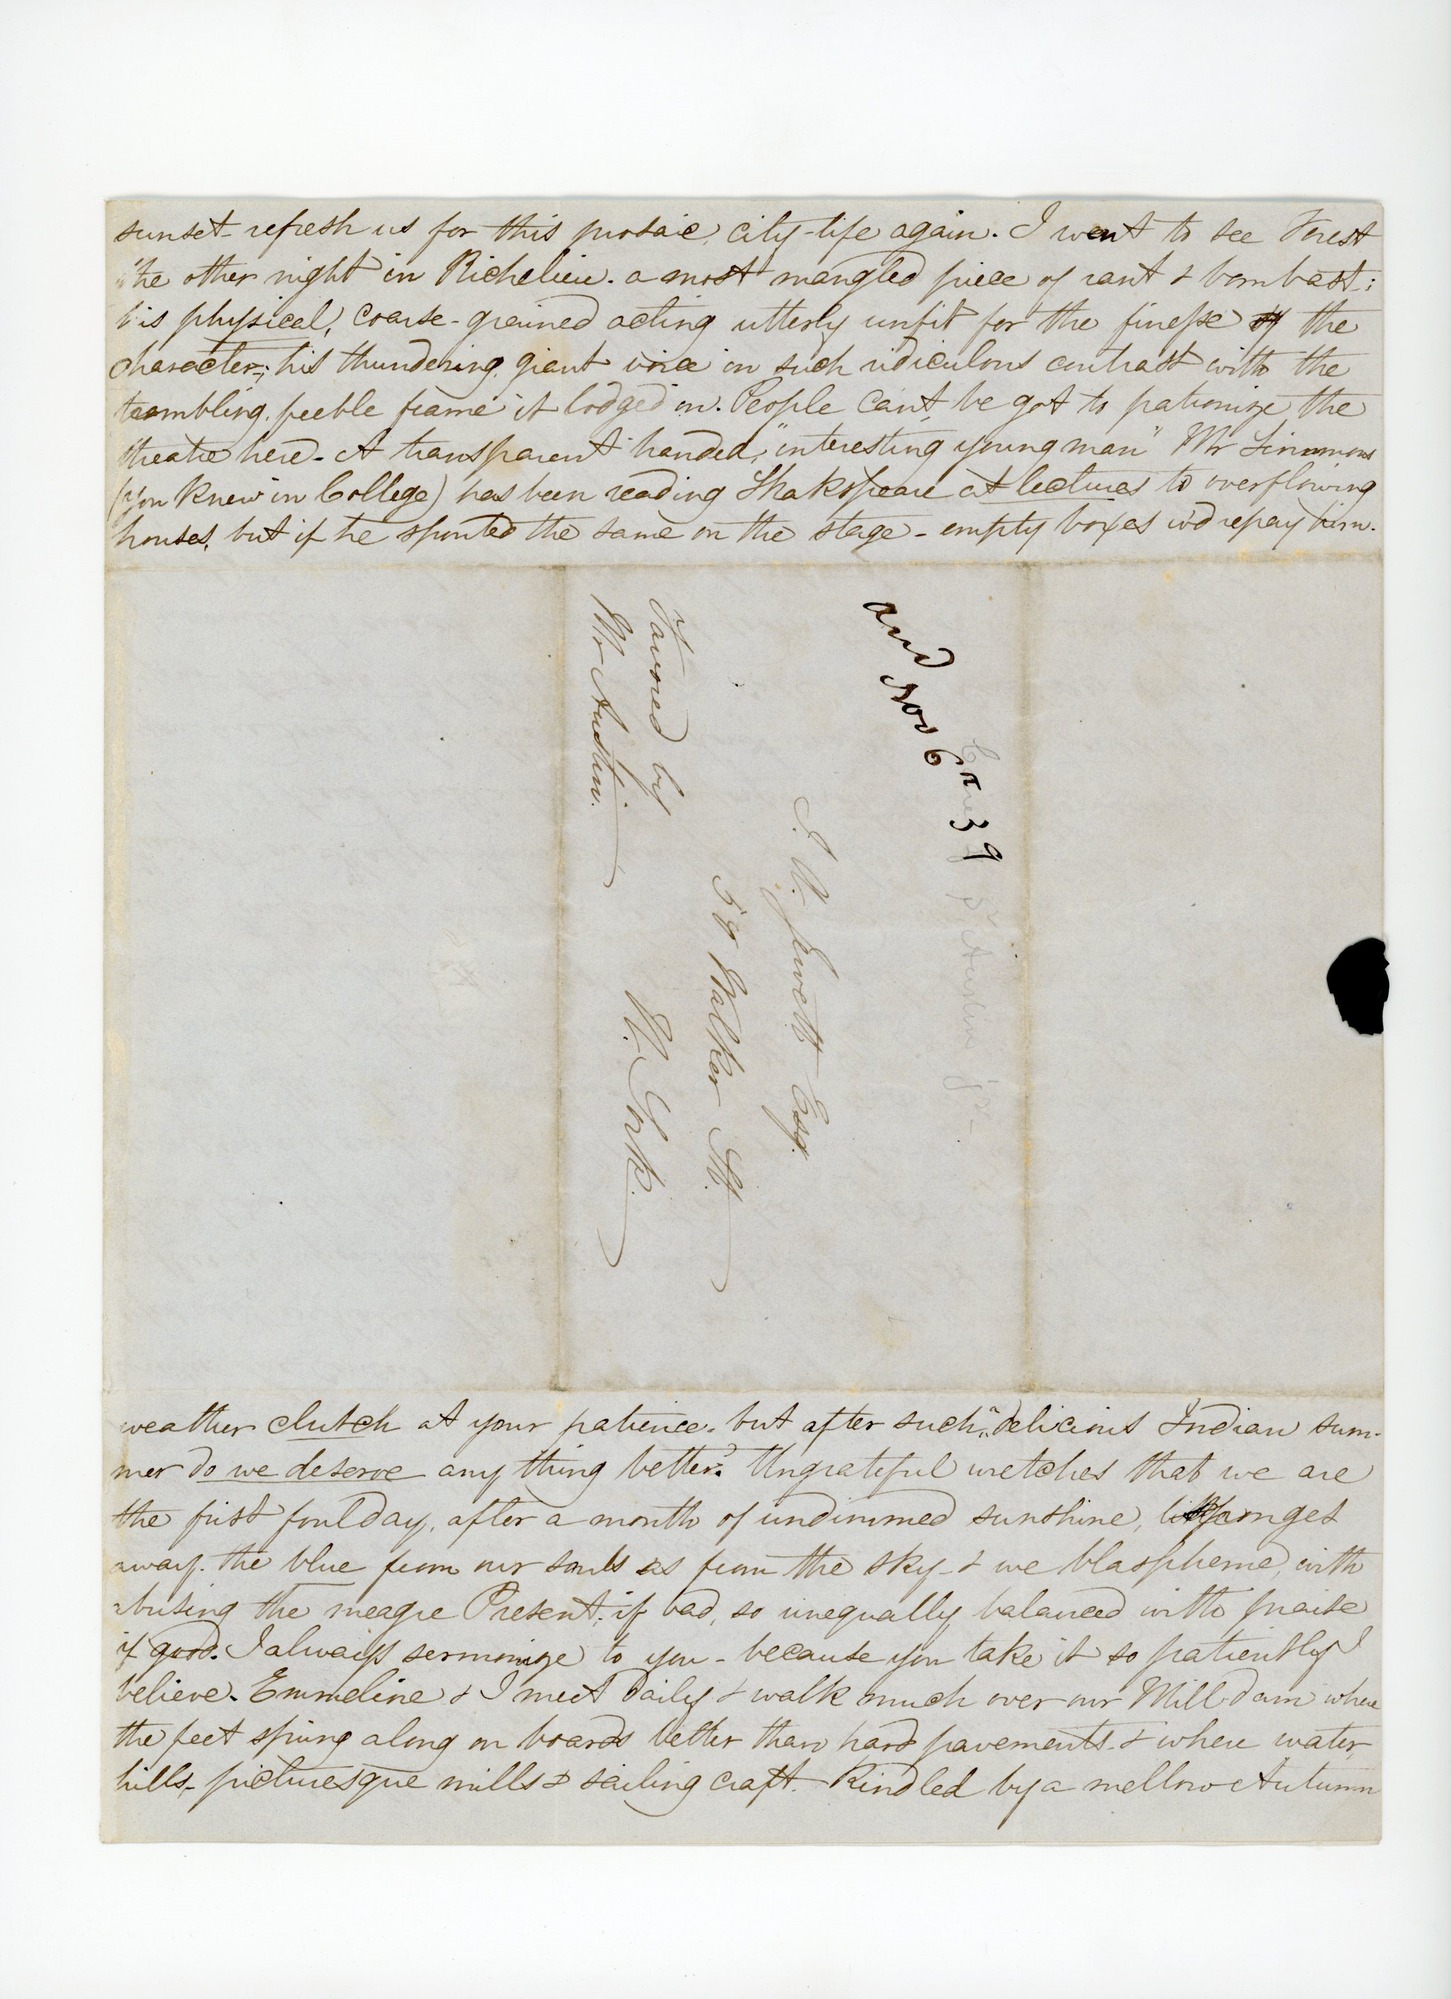 sunset-refresh us for this prosaic city-life again. I went to see Forest
the other night in Richelieu. a most mangled piece of rant & bombast;
his physical, coarse-grained acting utterly unfit for the finesse of the
character; his thundering, giant voice in such ridiculous contrast with the
trembling, feeble frame it lodged in. People can't be got to patronize the
theatre here. A transparent handed, "interesting young man" Mr Simmons
(you knew in College) has been reading Shakspeare at lectures to overflowing
houses, but if he spouted the same on the stage - empty boxes w'd repay him.
and Nov 6th 39
J. N. Jewett Esq.
59 Walker St.
N. York.
Favored by
Mr Austin.
weather clutch at your patience. but after such "delicious Indian sum-
mer do we deserve any thing better? Ungrateful wretches that we are
the first foul day, after a month of undimmed sunshine, sponges
away the blue from our souls as from the sky - & we blaspheme, with
abusing the meagre Present, if bad, so unequally balanced with praise
if good. I always sermonize to you - because you take it so patiently I
believe. Emmeline & I meet daily & walk much over our Mill-dam where
the feet spring along on boards better than hard pavements - & where water,
hills, picturesque mills & sailing craft. Kindled by a mellow Autumn